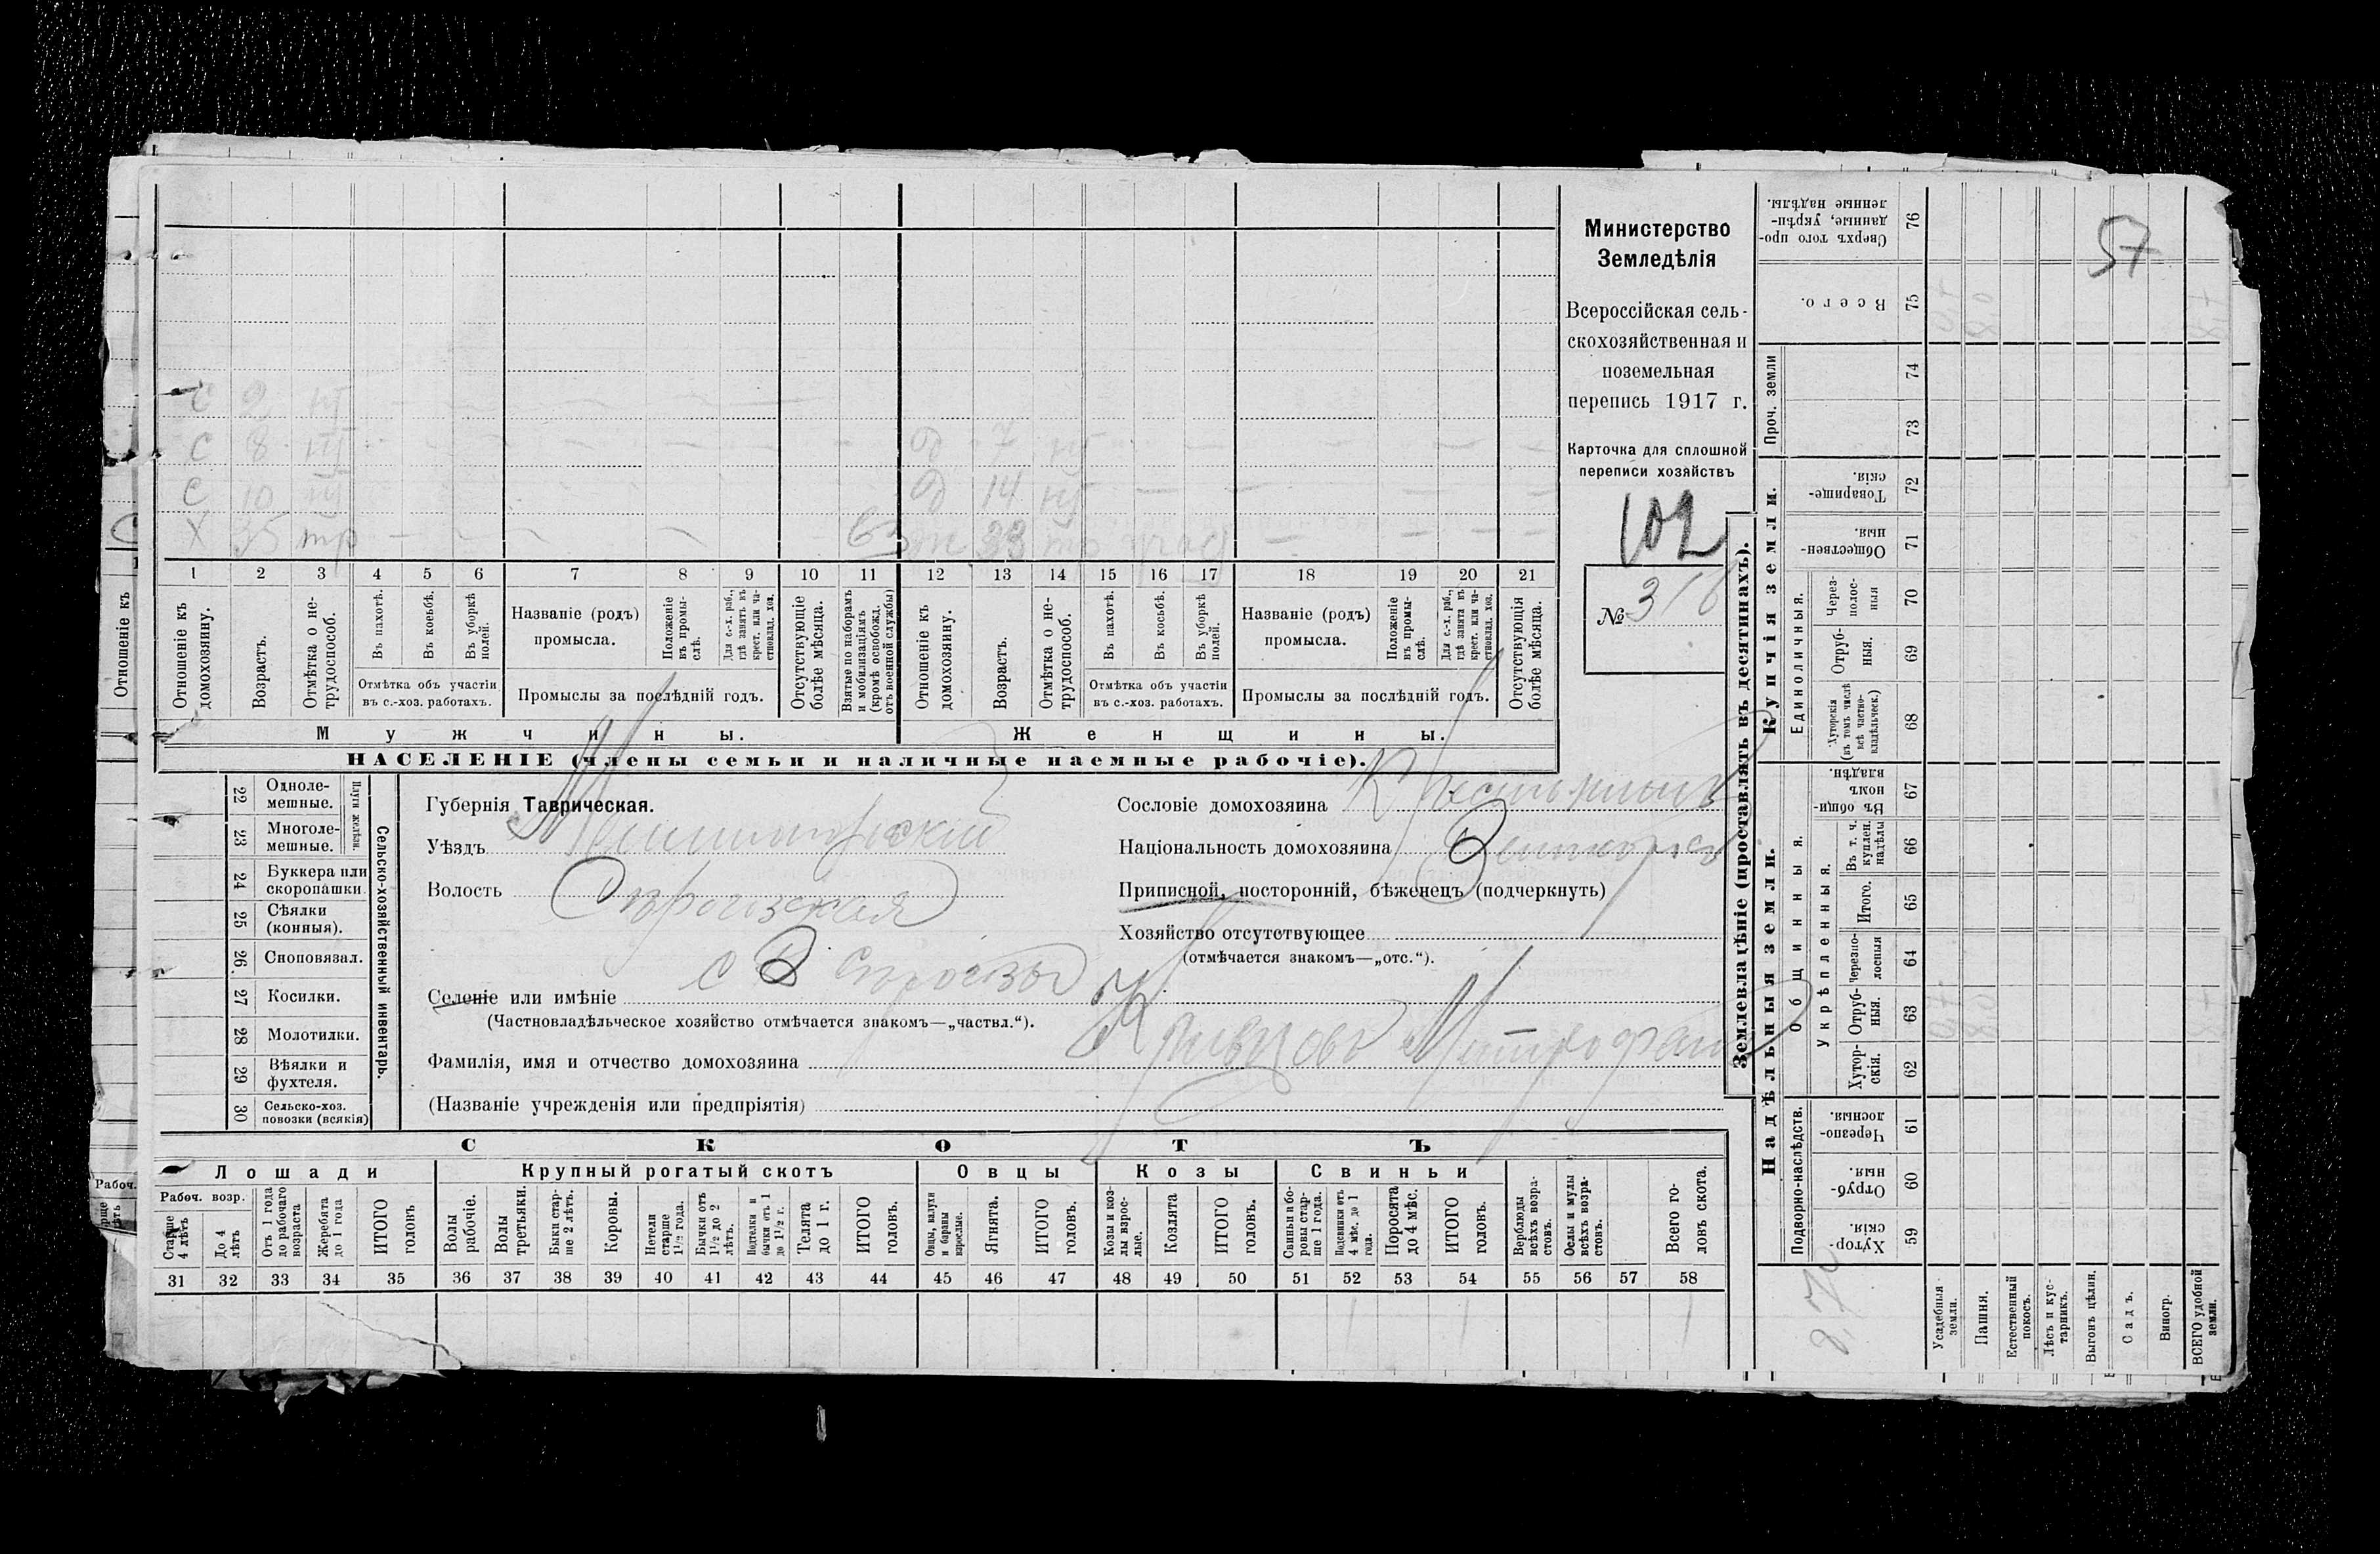 57
Министерство
Земледѣлія
Всероссійская сель-
скохозяйственная и
поземельная
перепись 1917 г.
Карточка для сплошной
переписи хозяйствъ
102
№ 316
С 9 нт
С 8 нт д 7 нт
С 10 нт д 14 нт
Х 35 тр ж 33 тр
1 2 3 4 5 6 7 8 9 10 11 12 13 14 15 16 17 18 19 20 21
Отношеніе къ домохозяину.
Возрастъ.
Отмѣтка о не-трудоспособ.
Въ пахотѣ.
Въ косьбѣ.
Въ уборкѣ полей.
Отмѣтка объ участіи
въ с.-хоз. работахъ.
Названіе (родъ)
промысла.
Положеніе въ промы-слѣ.
Для с.-х. раб., гдѣ занятъ въ крест. или ча-стновлад. хоз.
Промыслы за послѣдній годъ.
Отсутствующіе болѣе мѣсяца.
Взятые по наборамъ и мобилизаціямъ (кромѣ освобожд. отъ военной службы)
Отношеніе къ домохозяину.
Возрастъ.
Отмѣтка о не-трудоспособ.
Въ пахотѣ.
Въ косьбѣ.
Въ уборкѣ полей.
Отмѣтка объ участіи
въ с.-хоз. работахъ.
Названіе (родъ)
промысла.
Положеніе въ промы-слѣ.
Для с.-х. раб., гдѣ занята въ крест. или ча-стновлад. хоз.
Промыслы за послѣдній годъ.
Отсутствующія болѣе мѣсяца.
Мужчины. Женщины.
НАСЕЛЕНІЕ (члены семьи и наличные наемные рабочіе).
22 Одноле-мешные.
23 Многоле-мешные.
Плуги желѣзн.
24 Буккера или скоропашки
25 Сѣялки (конныя).
26. Сноповязал.
27 Косилки.
28 Молотилки.
29 Вѣялки и фухтеля.
30 Сельско-хоз. повозки (всякія)
Сельско-хозяйственный инвентарь.
Губернія Таврическая.
Уѣздъ Мелитопольскій
Волость
Селеніе или имѣніе
(Частновладѣльческое хозяйство отмѣчается знакомъ—„частвл.“).
Фамилія, имя и отчество домохозяина Кравцовъ Митрофанъ
(Названіе учрежденія или предпріятія)
Сословіе домохозяина Крестьянинъ
Національность домохозяина
Приписной, посторонній, бѣженецъ (подчеркнуть)
Хозяйство отсутствующее
(отмѣчается знакомъ—„отс.“).
СКОТЪ
Лошади Крупный рогатый скотъ Овцы Козы Свиньи
Рабоч. возр.
Старше 4 лѣтъ
До 4 лѣтъ
Отъ 1 года до рабочаго возраста
Жеребята до 1 года
ИТОГО головъ
Волы рабочіе.
Волы третьяки.
Быки стар-ше 2 лѣтъ.
Коровы.
Нетели старше 1½ года.
Бычки отъ 1½ до 2 лѣтъ.
Подтелки и бычки отъ 1 до 1½ г.
Телята до 1 г.
ИТОГО головъ.
Овцы, валухи и бараны взрослые.
Ягнята.
ИТОГО головъ.
Козы и коз-лы взрос-лые.
Козлята
ИТОГО головъ.
Свиньи и бо-ровы стар-ше 1 года.
Подсвинки отъ 4 мѣс. до 1 года.
Поросята до 4 мѣс.
ИТОГО головъ.
Верблюды всѣхъ возра-стовъ.
Ослы и мулы всѣхъ возра-стовъ.
Всего го-ловъ скота.
31 32 33 34 35 36 37 38 39 40 41 42 43 44 45 46 47 48 49 50 51 52 53 54 55 56 57 58
1 1 1
Землевладѣніе (проставлять въ десятинахъ).
Надѣльныя земли. Купчія земли.
Проч. земли
Подворно-наслѣдств.
Общинныя.
Укрѣпленныя.
Единоличныя.
Хутор-скія. 59
Отруб-ныя. 60
Черезпо-лосныя. 61
Хутор-скія. 62
Отруб-ныя. 63
Черезпо-лосныя 64
Итого. 65
Въ т. ч. куплен. надѣлы 66
Въ общи-номъ владѣн. 67
Хуторскія (въ томъ числѣ всѣ частно-владѣльческ.) 68
Отруб-ныя. 69
Через-полос-ныя 70
Обществен-ныя. 71
Товарище-скія. 72
73
74
Всего. 75
Сверхъ того про-данные, укрѣп-ленные надѣлы. 76
Усадебныя земли.
Пашня.
Естественный покосъ.
Лѣсъ и кус-тарникъ.
Выгонъ цѣлин.
Садъ.
Виногр.
ВСЕГО удобной земли.
Отношеніе къ
Рабоч.